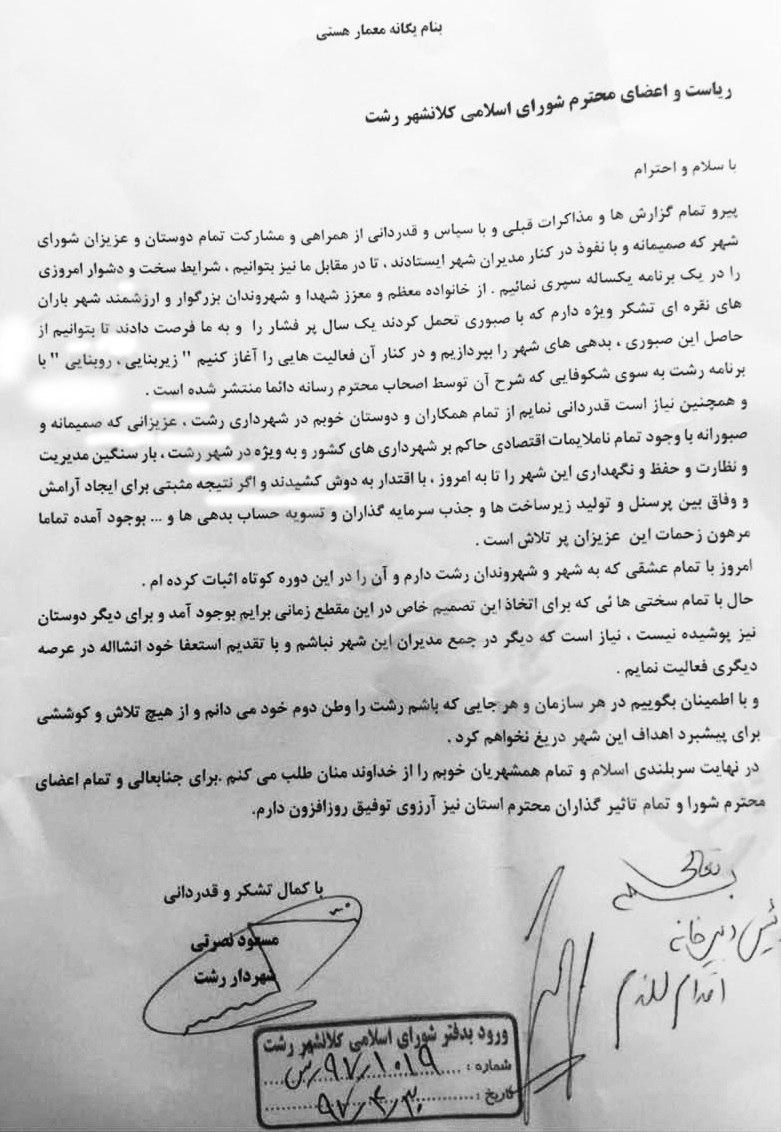 بنام یگانه معمار هستی
ریاست و اعضای محترم شورای اسلامی کلانشهر رشت
با سلام و احترام
پیرو تمام گزارش ها و مذاکرات قبلی و با سپاس و قدردانی از همراهی و مشارکت تمام دوستان و عزیزان شورای
شهر که صمیمانه و با نفوذ در کنار مدیران شهر ایستادند ، تا در مقابل ما نیز بتوانیم ، شرایط سخت و دشوار امروزی
را در یک برنامه یکساله سپری نمائیم . از خانواده معظم و معزز شهدا و شهروندان بزرگوار و ارزشمند شهر باران
های نقره ای تشکر ویژه دارم که با صبوری تحمل کردند یک سال پر فشار را و به ما فرصت دادند تا بتوانیم از
حاصل این صبوری ، بدهی های شهر را بپردازیم و در کنار آن فعالیت هایی را آغاز کنیم " زیربنایی ، روبنایی " با
برنامه رشت به سوی شکوفایی که شرح آن توسط اصحاب محترم رسانه دائما منتشر شده است .
و همچنین نیاز است قدردانی نمایم از تمام همکاران و دوستان خوبم در شهرداری رشت ، عزیزانی که صمیمانه و
صبورانه با وجود تمام ناملایمات اقتصادی حاکم بر شهرداری های کشور و به ویژه در شهر رشت ، بار سنگین مدیریت
و نظارت و حفظ و نگهداری این شهر را تا به امروز ، با اقتدار به دوش کشیدند و اگر نتیجه مثبتی برای ایجاد آرامش
و وفاق بین پرسنل و تولید زیرساخت ها و جذب سرمایه گذاران و تسویه حساب بدهی ها و ... بوجود آمده تماما
مرهون زحمات این عزیزان پر تلاش است .
امروز با تمام عشقی که به شهر و شهروندان رشت دارم و آن را در این دوره کوتاه اثبات کرده ام .
حال با تمام سختی ها ئی که برای اتخاذ این تصمیم خاص در این مقطع زمانی برایم بوجود آمد و برای دیگر دوستان
نیز پوشیده نیست ، نیاز است که دیگر در جمع مدیران این شهر نباشم و با تقدیم استعفا خود انشااله در عرصه
دیگری فعالیت نمایم .
و با اطمینان بگوییم در هر سازمان و هر جایی که باشم رشت را وطن دوم خود می دانم و از هیچ تلاش و کوششی
برای پیشبرد اهداف این شهر دریغ نخواهم کرد .
در نهایت سربلندی اسلام و تمام همشهریان خوبم را از خداوند منان طلب می کنم .برای جنابعالی و تمام اعضای
محترم شورا و تمام تاثیر گذاران محترم استان نیز آرزوی توفیق روزافزون دارم.
با کمال تشکر و قدردانی
مسعود نصرتی
شهردار رشت
دبیرخانه
اقدام
ورود بدفتر شورای اسلامی کلانشهر رشت
شماره : ۹۷/۱۰۱۹
تاریخ : ۹۷/۴/۳۰